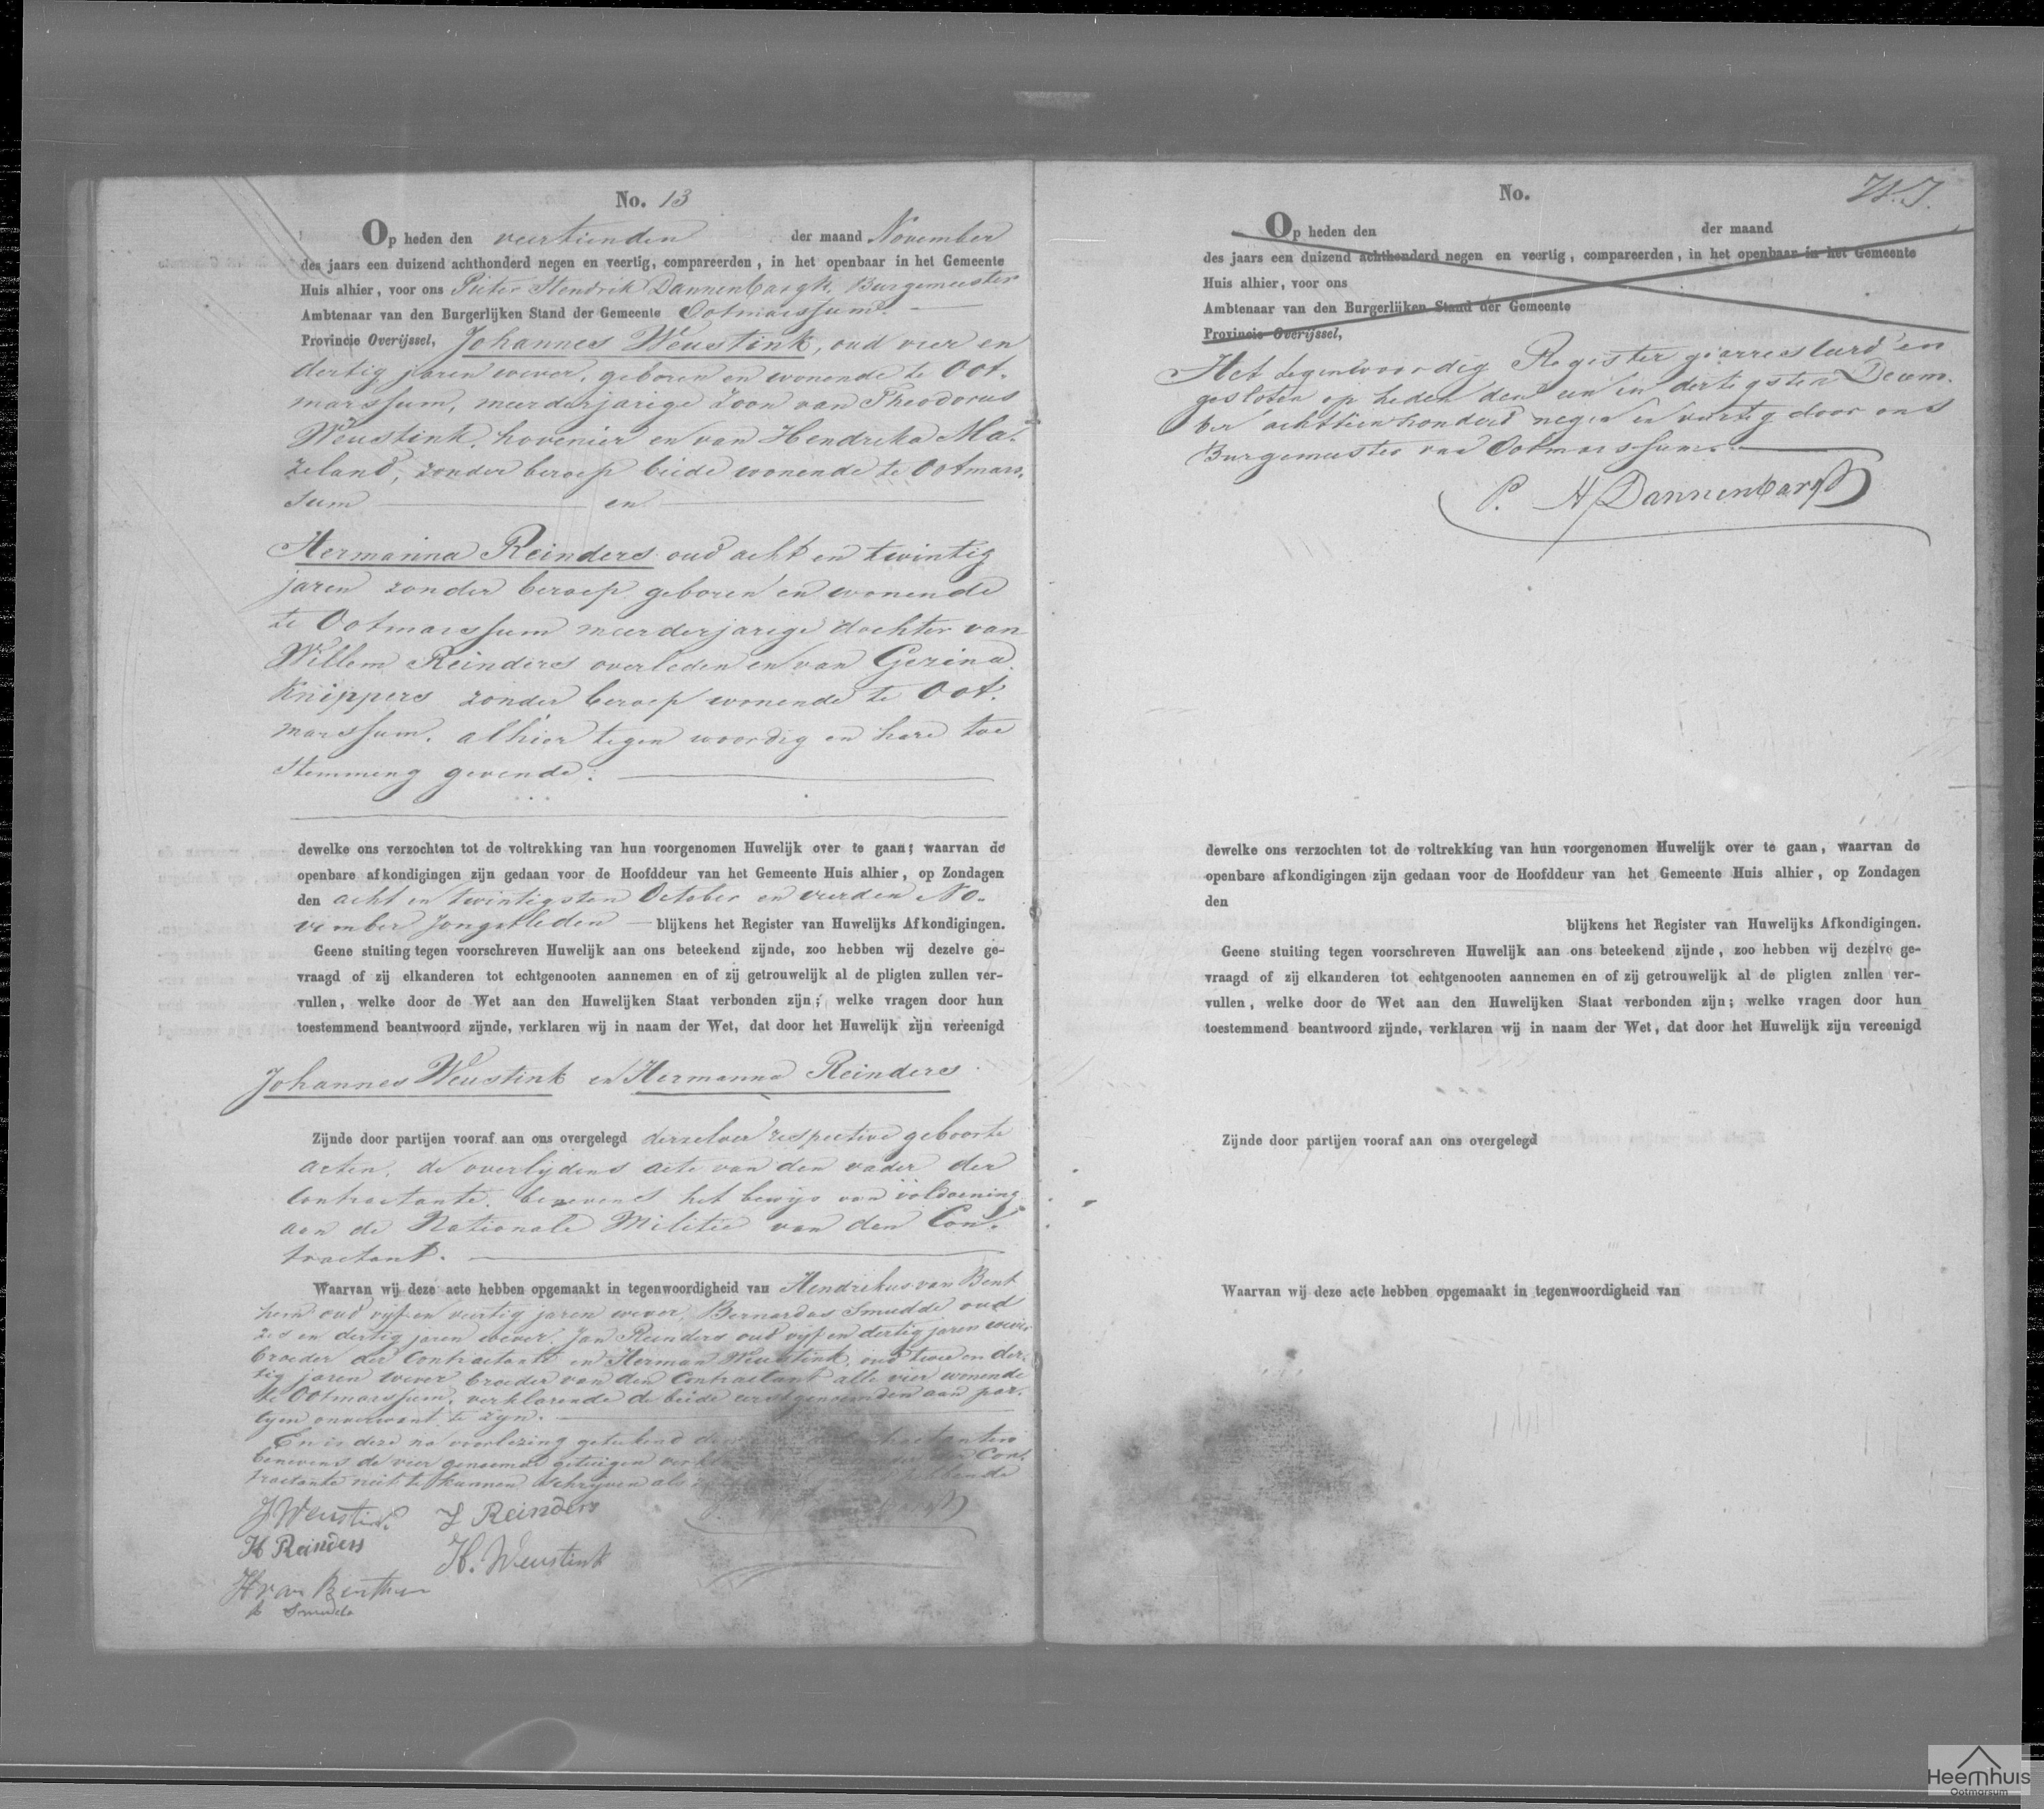 No. 13
Op heden den veertienden der maand November
des jaars een duizend achthonderd negen en veertig, compareerden, in het openbaar in het Gemeente
Huis alhier, voor ons Pieter Hendrik Dannenbargh, Burgemeester
Ambtenaar van den Burgerlijken Stand der Gemeente Ootmarssum.
Provincie Overijssel, Johannes Weustink, oud vier en
dertig jaren wever, geboren en wonende te Oot-
marssum, meerderjarige zoon van Theodorus
Weustink, hovenier en van Hendrika Ma-
zeland, zonder beroep beide wonende te Ootmars-
sum en
Hermanna Reinders oud acht en twintig
jaren zonder beroep geboren en wonende
te Ootmarssum meerderjarige dochter van
Willem Reinders overleden en van Gezina
Knippers zonder beroep wonende te Oot-
marssum. alhier tegen woordig en hare toe
stemming gevende.
dewelke ons verzochten tot de voltrekking van hun voorgenomen Huwelijk over te gaan; waarvan de
openbare afkondigingen zijn gedaan voor de Hoofddeur van het Gemeente Huis alhier, op Zondagen
den acht en twintigsten October en vierden No-
vember jongstleden blijkens het Register van Huwelijks Afkondigingen.
Geene stuiting tegen voorschreven Huwelijk aan ons beteekend zijnde, zoo hebben wij dezelve ge-
vraagd of zij elkanderen tot echtgenooten aannemen en of zij getrouwelijk al de pligten zullen ver-
vullen, welke door de Wet aan den Huwelijken Staat verbonden zijn; welke vragen door hun
toestemmend beantwoord zijnde, verklaren wij in naam der Wet, dat door het Huwelijk zijn vereenigd
Johannes Weustink en Hermanna Reinders
Zijnde door partijen vooraf aan ons overgelegd derzelver respective geboorte
acten, de overlijdens acte van den vader der
Contractante, benevens het bewijs van voldoening
aan de Nationale Militie van den Con-
tractant.
Waarvan wij deze acte hebben opgemaakt in tegenwoordigheid van Hendrikus van Bent
hem oud vijf en veertig jaren wever, Bernardus Smudde oud
zes en dertig jaren wever, Jan Reinders oud vijf en dertig jaren wever
broeder der Contractante en Herman Weustink, oud twee en der-
tig jaren wever broeder van den Contractant alle vier wonende
te Ootmarssum, verklarende de beide eerstgenoemden aan par-
tijen onverwant te zijn.
En is deze na voorlezing geteekend
benevens de vier genoemde getuigen Con-
tractante niet te kunnen schrijven als
J Weustink J Reinders
H Reinders
H. Weustink
H van Benthem
B Smudde
No.
Op heden den der maand
des jaars een duizend achthonderd negen en veertig, compareerden, in het openbaar in het Gemeente
Huis alhier, voor ons
Ambtenaar van den Burgerlijken Stand der Gemeente
Provincie Overijssel,
Het tegenwoordig Register gearresteerd en
gesloten op heden den een en dertigsten Decem-
ber achttien honderd negen en veertig door ons
Burgemeester van Ootmarssum.
P. H Dannenbargh
dewelke ons verzochten tot de voltrekking van hun voorgenomen Huwelijk over te gaan, waarvan de
openbare afkondigingen zijn gedaan voor de Hoofddeur van het Gemeente Huis alhier, op Zondagen
den
blijkens het Register van Huwelijks Afkondigingen.
Geene stuiting tegen voorschreven Huwelijk aan ons beteekend zijnde, zoo hebben wij dezelve ge-
vraagd of zij elkanderen tot echtgenooten aannemen en of zij getrouwelijk al de pligten zullen ver-
vullen, welke door de Wet aan den Huwelijken Staat verbonden zijn; welke vragen door hun
toestemmend beantwoord zijnde, verklaren wij in naam der Wet, dat door het Huwelijk zijn vereenigd
Zijnde door partijen vooraf aan ons overgelegd
Waarvan wij deze acte hebben opgemaakt in tegenwoordigheid van
Heemhuis
Ootmarsum